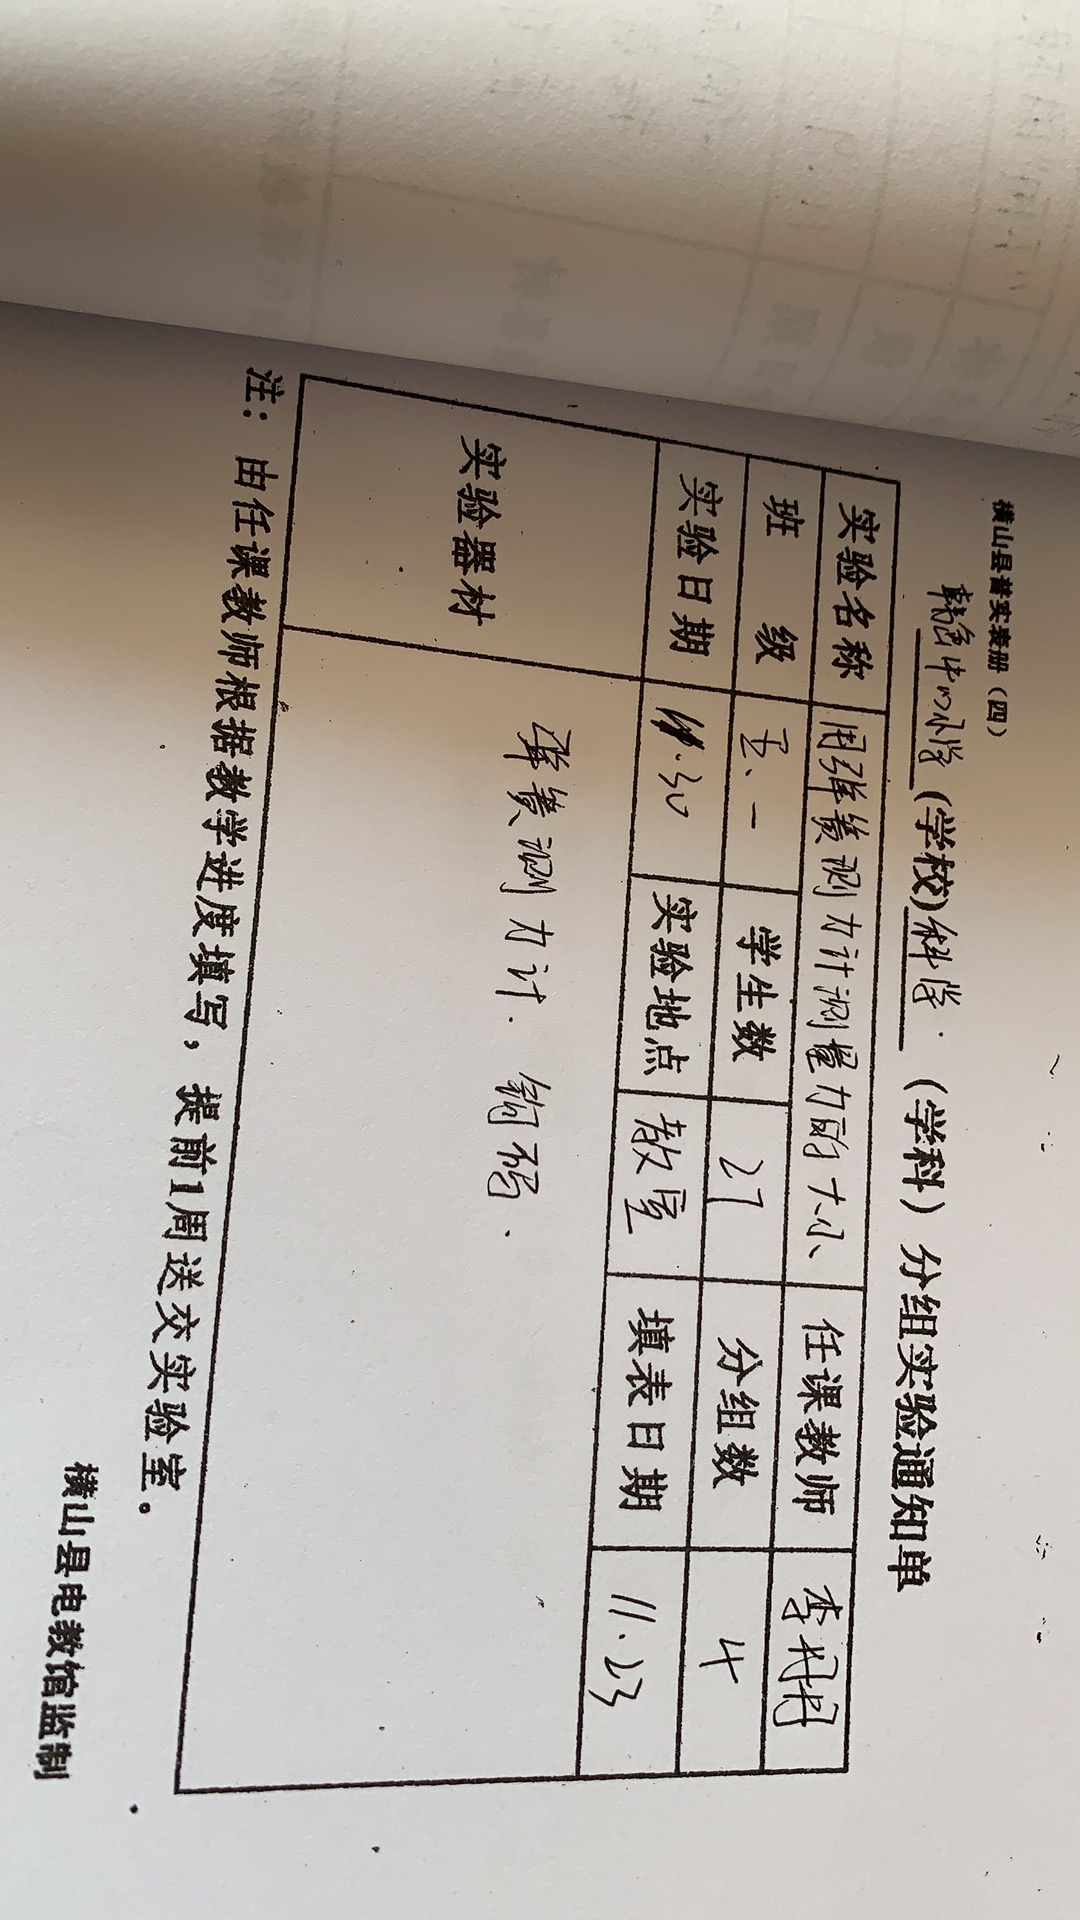 横山县普实表册（四）
中心小学(学校)科学（学科）分组实验通知单
实验名称 用弹簧测力计测量力的大小 任课教师 李
班级 五.一 学生数 27 分组数 4
实验日期 11.30 实验地点 教室 填表日期 11.23
实验器材 弹簧测力计. 钩码.
注：由任课教师根据教学进度填写，提前1周送交实验室。
横山县电教馆监制